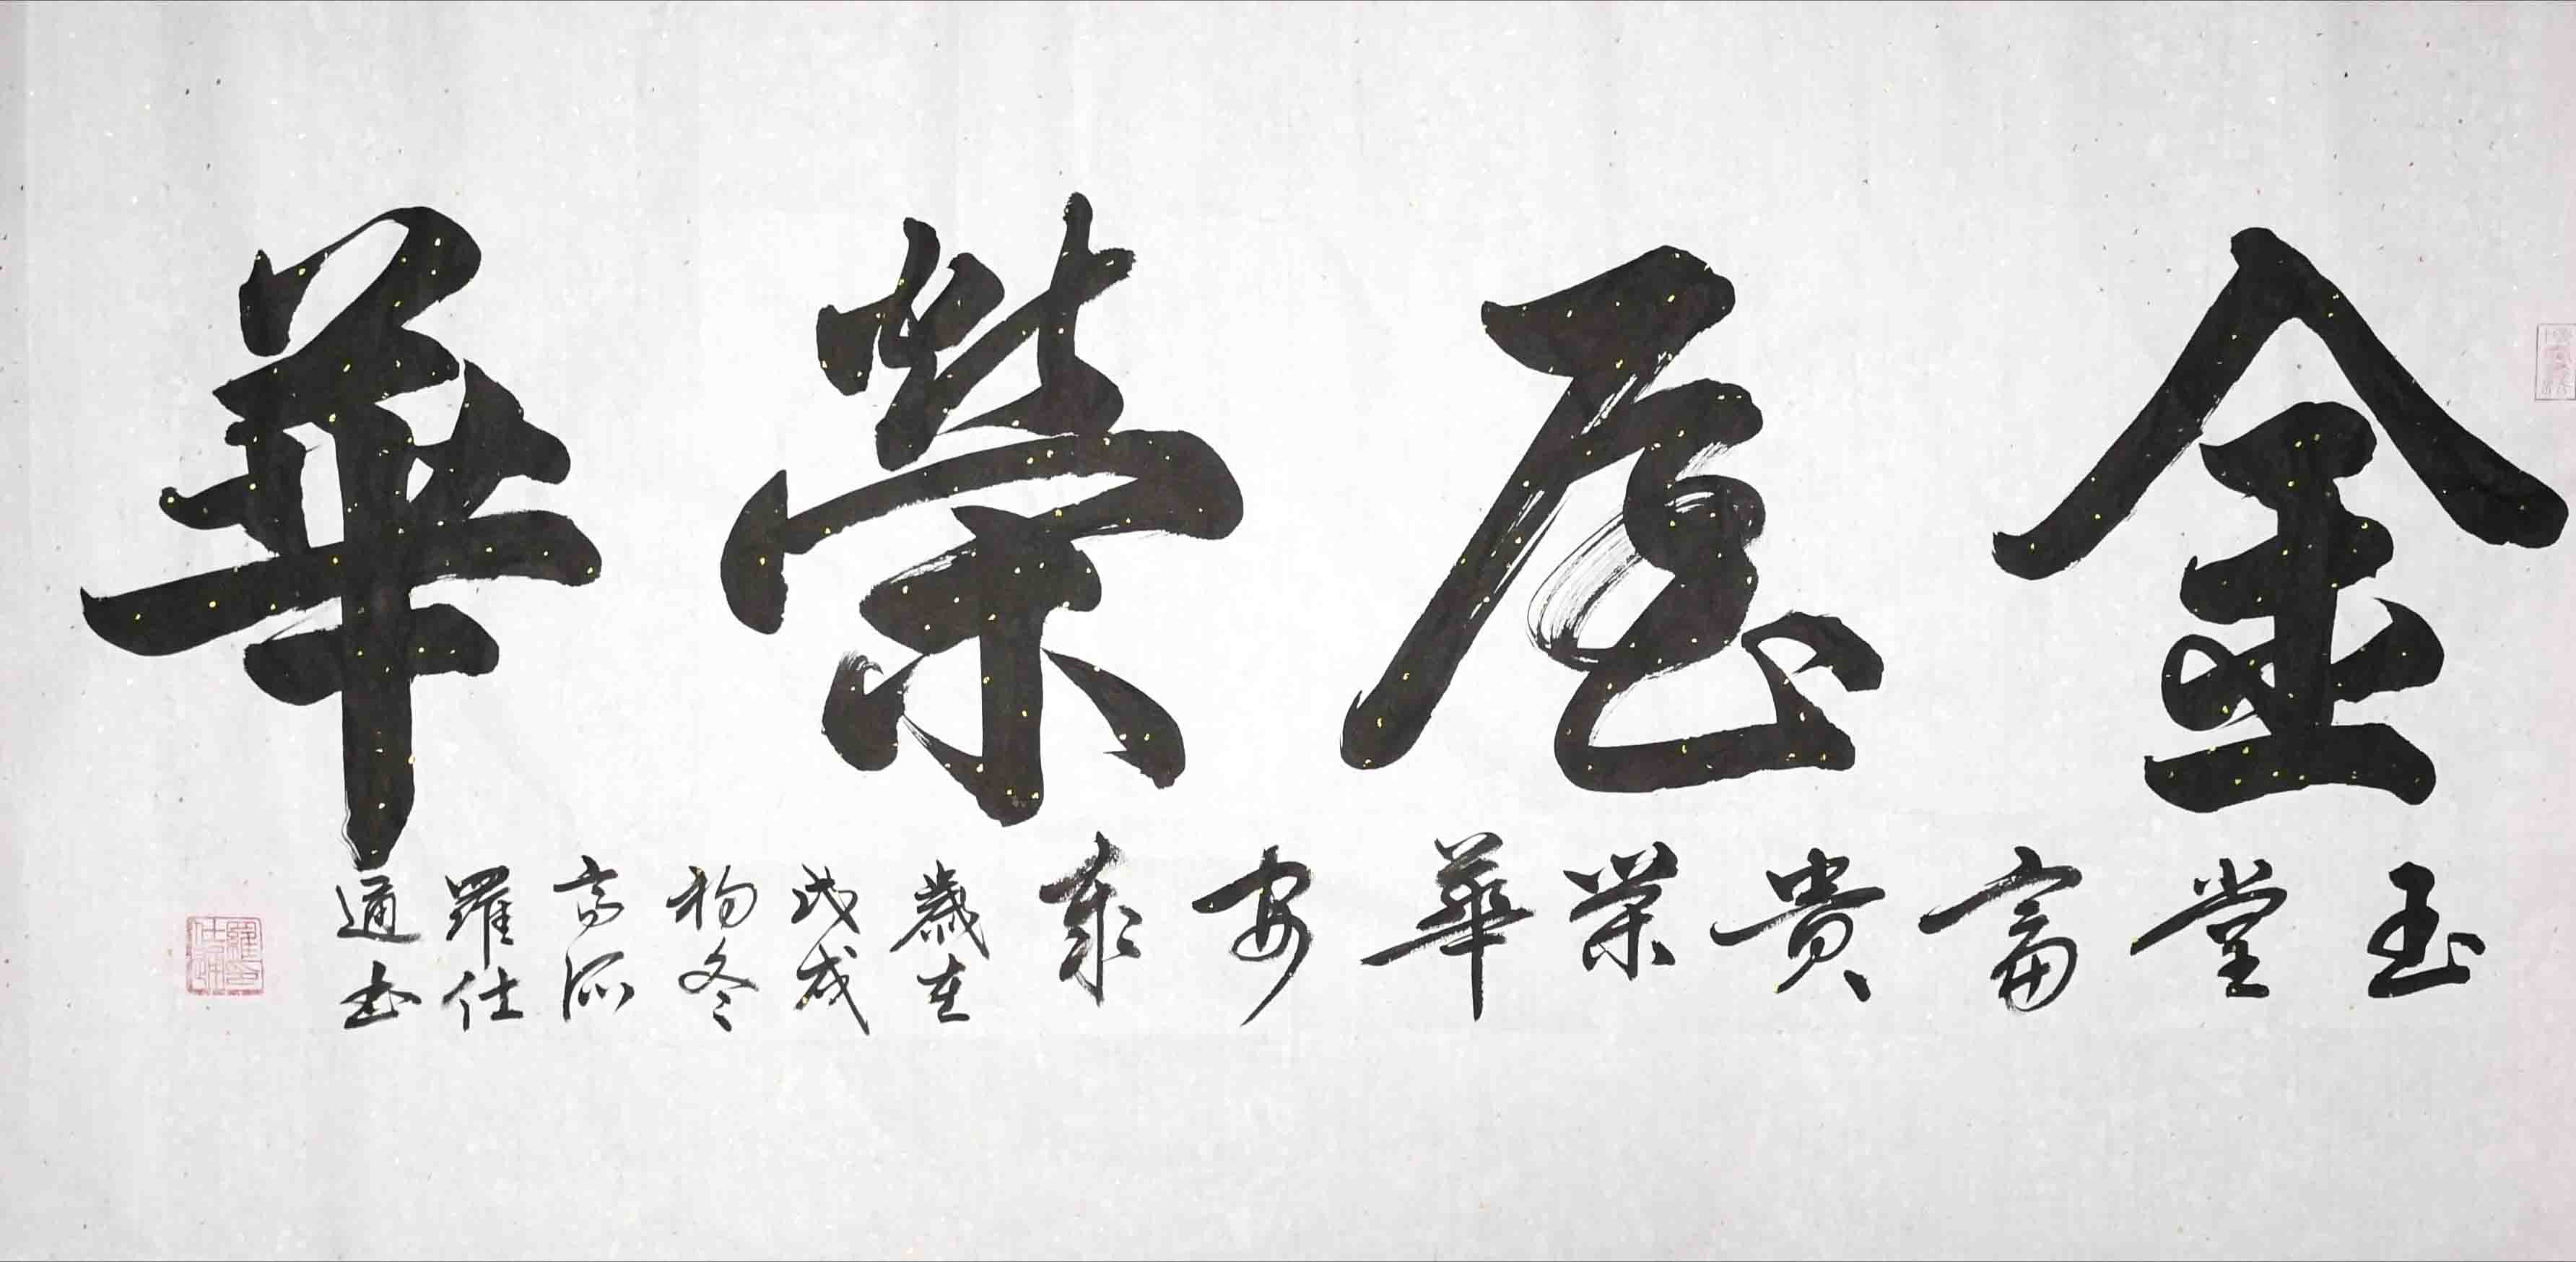 金屋榮華
玉堂富貴榮華安泰
歲在
戊戌
初冬
高源
羅仕
通書